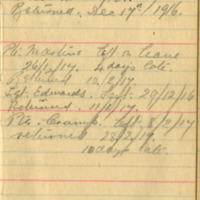 Returned. Dec 17th 1916.
Pte. Martin Left on Leave
26/1/17. 4 days late.
Returned 10/2/17
Sgt. Edwards. Left. 29/12/16
Returned. 11/1/17.
Pte. Cramp. Left 8/2/17
returned 28/2/17
10 days late.